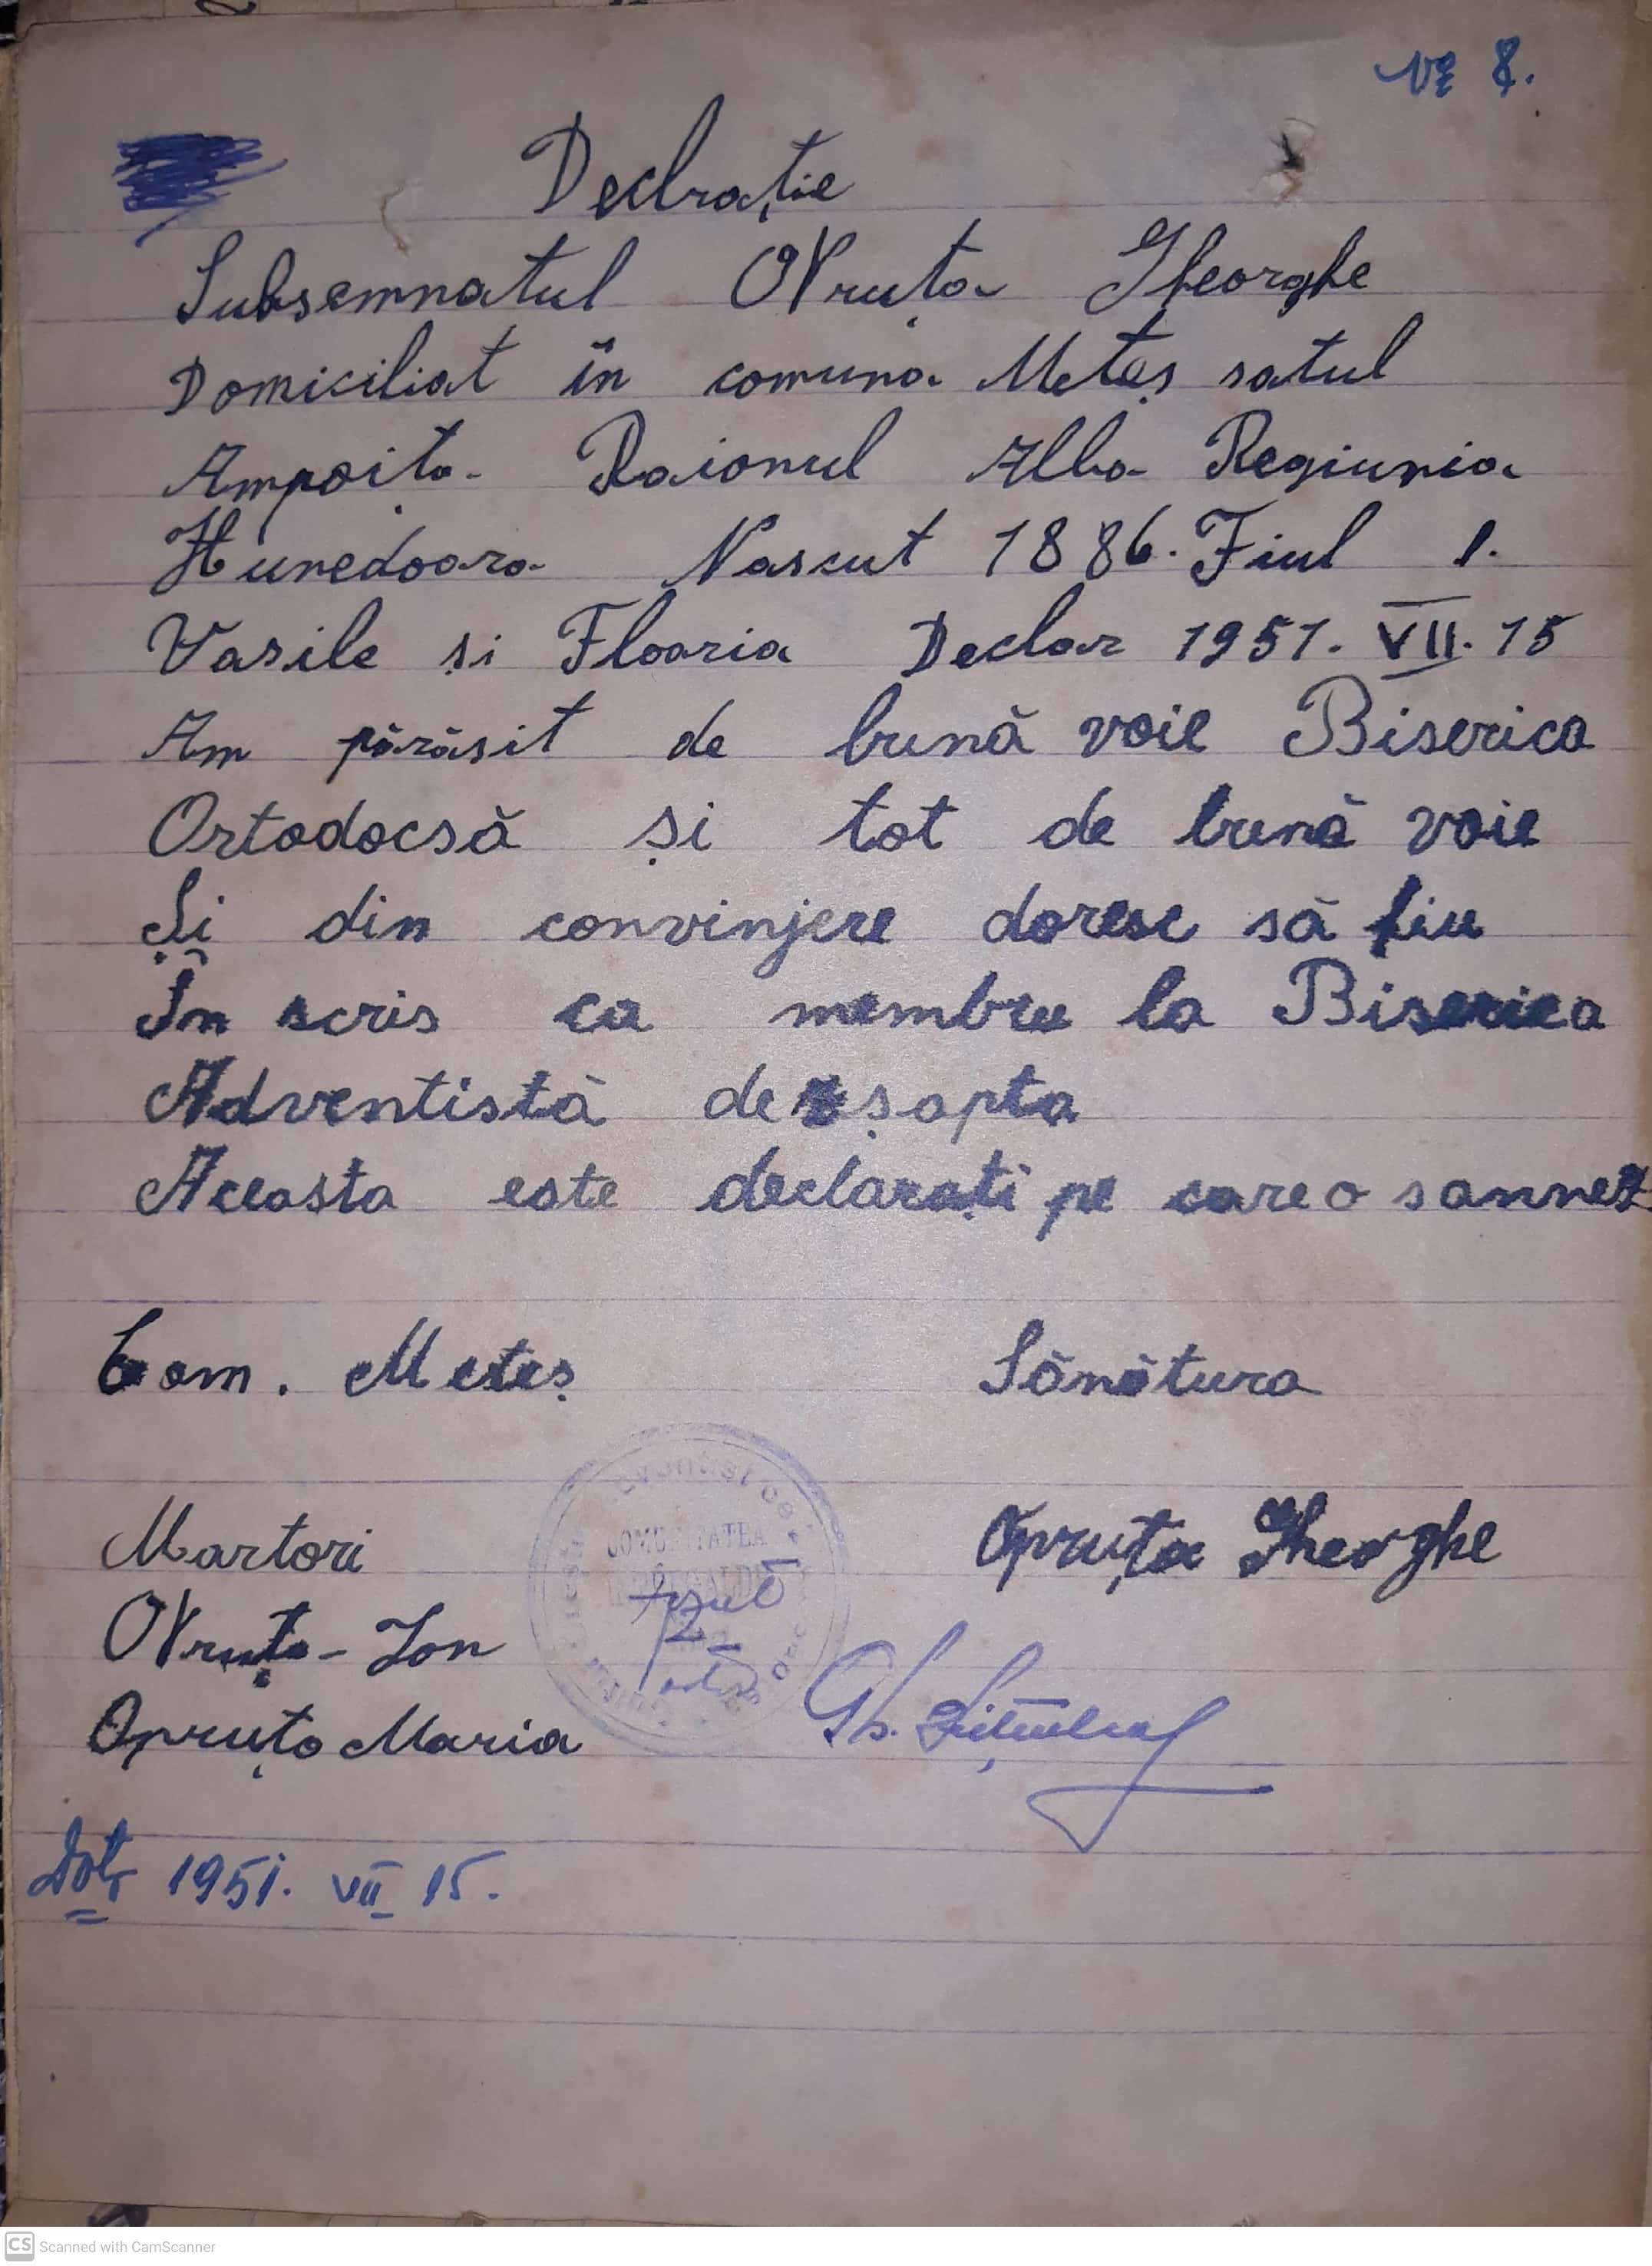 № 8.
Declrație
Subsemnatul Opruța Gheorghe
Domiciliat în comuna Meteș satul
Ampoița Raionul Alba Regiunia
Hunedoara Nascut 1886. Fiul l.
Vasile și Floaria Declar 1951. VII. 15
Am părăsit de bună voie Biserica
Ortodocsă și tot de bună voie
Și din convinjere doresc să fiu
În scris ca membru la Biserica
Adventistă de șapta
Aceasta este declarați pe care o sannez
Com. Meteș Sănătura
COMUNITATEA
Martori Opruța Gheorghe
Opruța Ion
Opruța Maria Gh.
Dat 1951. VII 15.
CS Scanned with CamScanner